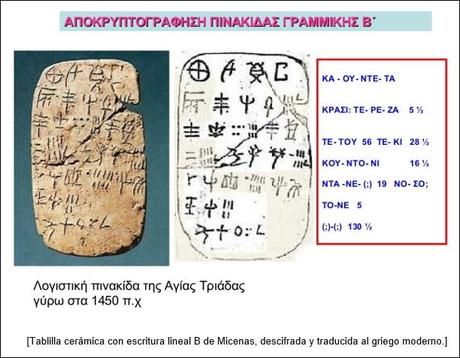 ΑΠΟΚΡΥΠΤΟΓΡΑΦΗΣΗ ΠΙΝΑΚΙΔΑΣ ΓΡΑΜΜΙΚΗΣ Β΄
ΚΑ - ΟΥ - ΝΤΕ - ΤΑ
ΚΡΑΣΙ: ΤΕ - ΡΕ - ΖΑ 5 ½
ΤΕ - ΤΟΥ 56 ΤΕ - ΚΙ 28 ½
ΚΟΥ - ΝΤΟ - ΝΙ 16 ½
ΝΤΑ -ΝΕ- (;) 19 ΝΟ - ΣΟ;
ΤΟ-ΝΕ 5
(;)-(;) 130 ½
Λογιστική πινακίδα της Αγίας Τριάδας
γύρω στα 1450 π.χ
[Tablilla cerámica con escritura lineal B de Micenas, descifrada y traducida al griego moderno.]